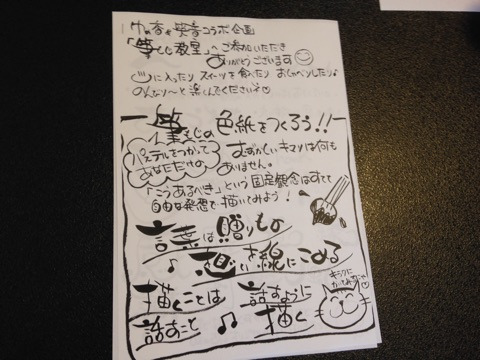 ゆの香＆笑音コラボ企画
「筆もじ教室」へご参加いただき
ありがとうございます
に入ったり スイーツを食べたり おしゃべりしたり♪
のんびり〜と楽しんでくださいネ♡
筆もじの 色紙をつくろう!!
パステルをつかって
あなただけの
むずかしいキマリは何も
ありません。
「こうあるべき」という固定観念はすてて
自由な発想で描いてみよう!
言葉は贈りもの
♪ 想いを線にこめる
描くことは 話すように
話すこと ♫ 描く
キラクに